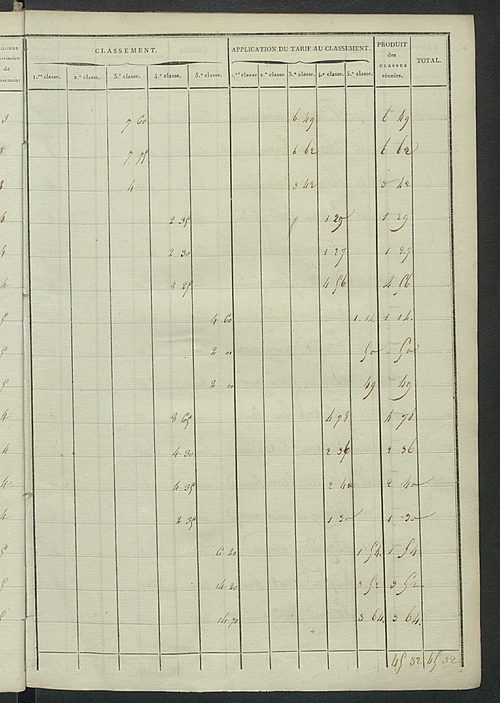 CLASSEMENT. APPLICATION DU TARIF AU CLASSEMENT. PRODUIT des CLASSES réunies. TOTAL.
1.re classe. 2.e classe. 3.e classe. 4.e classe. 5.e classe. 1.re classe. 2.e classe. 3.e classe. 4.e classe. 5.e classe.
3 7 60 6 49 6 49
3 7 75 6 62 6 62
3 4 3 42 3 42
4 2 35 1 29 1 29
4 2 30 1 27 1 27
4 8 25 4 56 4 56
5 4 60 1 14 1 14.
5 2 00 50 50
5 2 00 49 49
4 8 65 4 78 4 78
4 4 30 2 36 2 36
4 4 35 2 40 2 40
4 2 35 1 30 1 30
5 6 20 1 54. 1 54
5 14 20 3 52 3 52
5 14 70 3 64. 3 64.
45 32 45 32